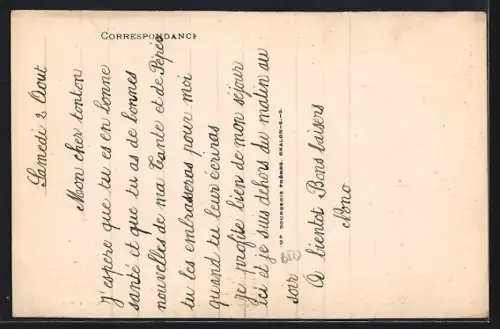 CORRESPONDANCE
Samedi 2 Aout
Mon cher tonton
J'espère que tu es en bonne
santé et que tu as de bonnes
nouvelles de ma Tante et de Pépée
tu les embrasseras pour moi
quand tu leur écriras
Je profite bien de mon séjour
ici et je suis dehors du matin au
soir
A bientot Bons baisers
Nono
IMP. BOURGEOIS FRÈRES, CHALON-S.-S.